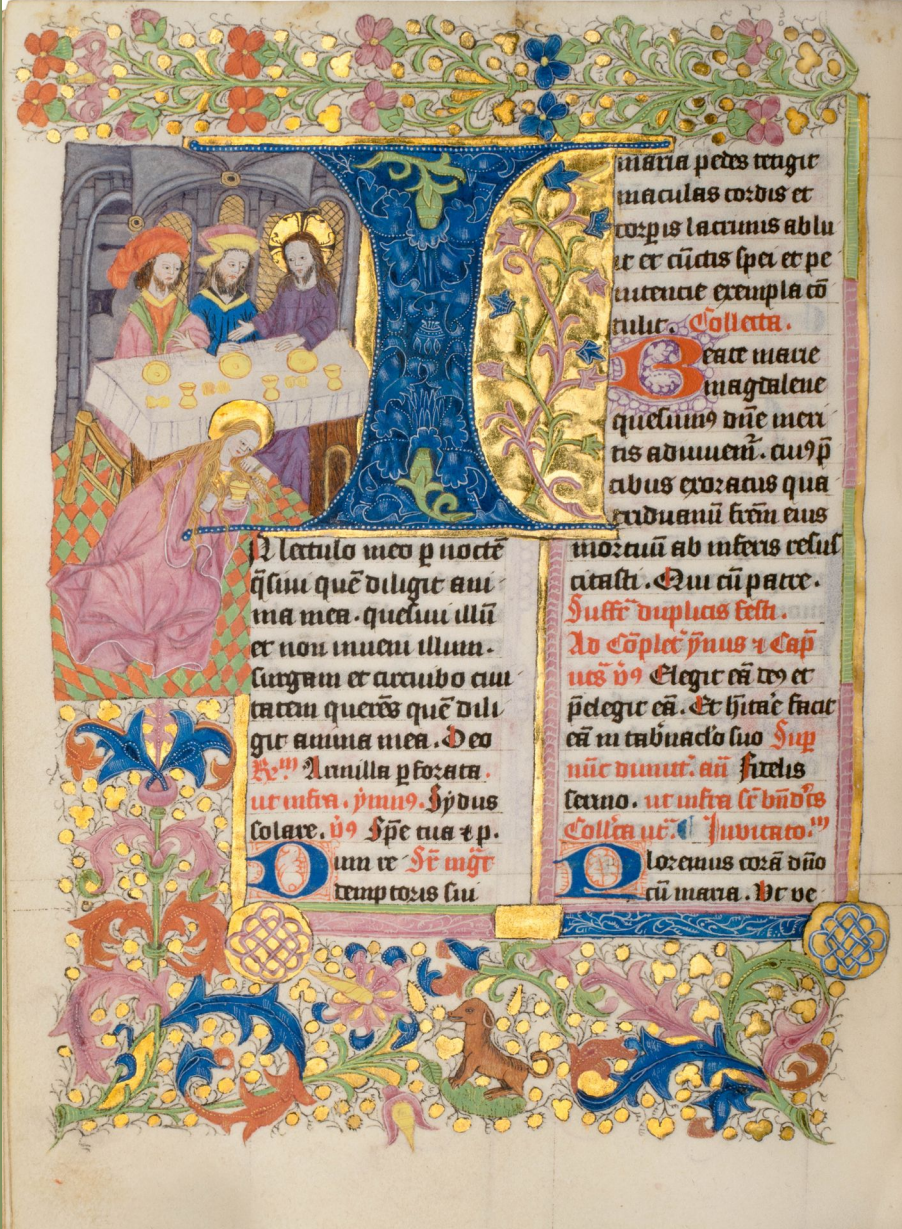 I
N lectulo meo p noctē
q̄siui quē diligit ani
ma mea · quesiui illū
et non inueni illum ·
surgam et circuibo ciui
tatem querēs quē dili
git anima mea . Deo
Armilla p forata .
ut infra . ymnꝰ . Sydus
solare . v̉ꝰ Spē tua ⁊ p .
Dum re
temptoris sui
maria pedes tetigit
maculas cordis et
corpis lacrimis ablu
it et cūctis spei et pe
nitencie exempla cō
tulit . Collecta .
Beate marie
magdalene
quesumꝰ dūe meri
tis adiuuem̄ . cuiꝰ p̄
cibus exoratus qua
triduanū frēm eius
mortuū ab inferis resus
citasti . Qui cū patre .
Suffr̄ duplicis festi .
Ad Cōplet̄ ymus ⁊ Cap̄
v̉ꝰ Elegit eā deꝰ et
p̄elegit eā . Et hītare facit
eā in tab̄naclo suo Sup
nūc dimit̄ . añ Fidelis
sermo . ut infra
Collc̄a ut̄ . Inuitato .
Ploremus corā dño
cū maria . Vt ve